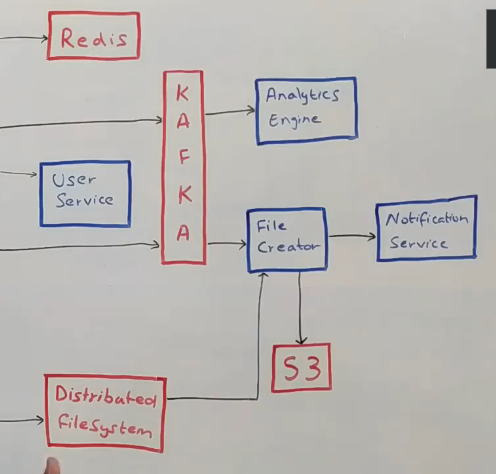 Redis
K
A
F
K
A
Analytics
Engine
User
Service
File
Creator
Notification
Service
S3
Distributed
FileSystem